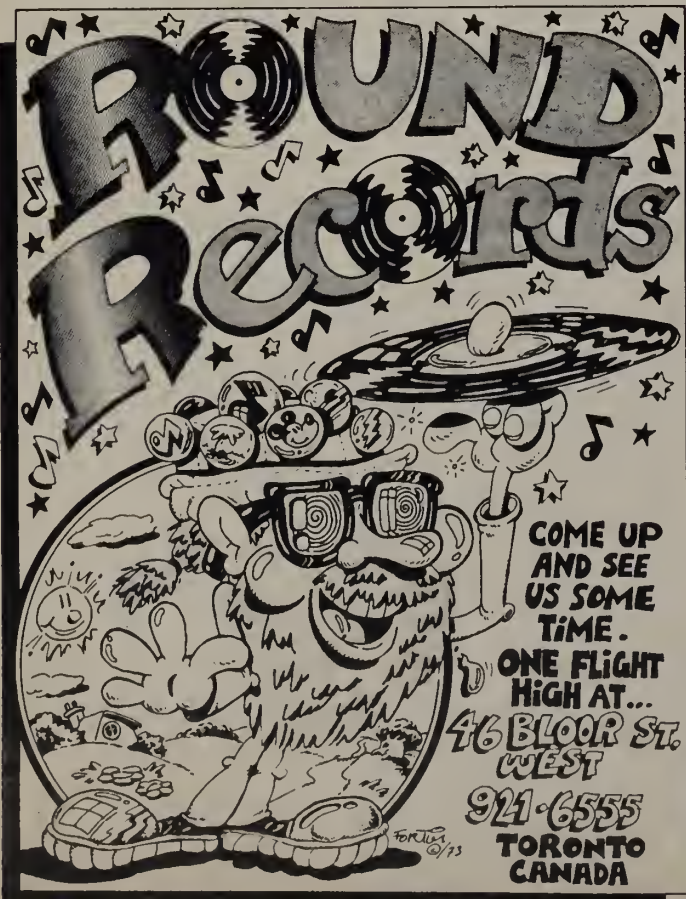 ROUND
Records
COME UP
AND SEE
US SOME
TiME.
ONE FLIGHT
HiGH AT...
46 BLOOR ST.
WEST
921-6555
TORONTO
CANADA
©/73